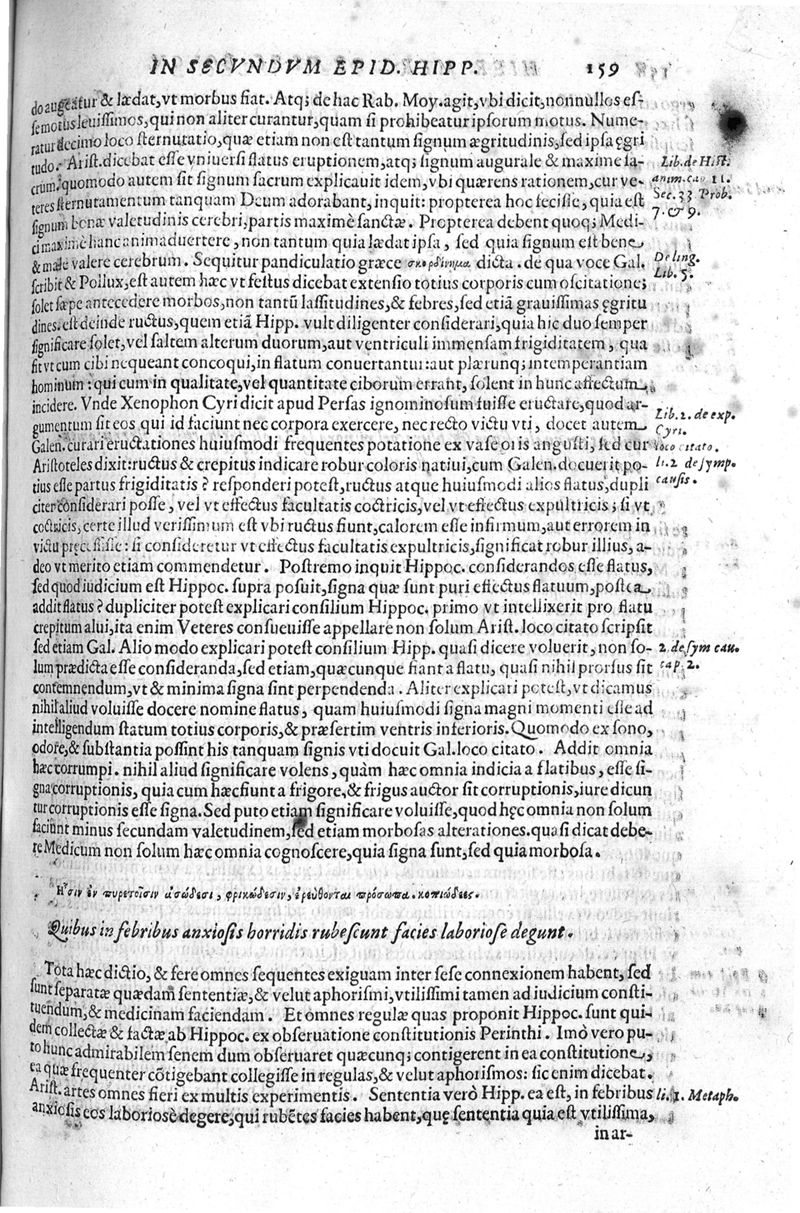 IN SECVNDVM EPID. HIPP. 159
do augeatur & lædat, vt morbus fiat. Atq; de hac Rab. Moy. agit, vbi dicit, nonnullos es-
se motus leuissimos, qui non aliter curantur, quam si prohibeatur ipsorum motus. Nume-
ratur decimo loco sternutatio, quæ etiam non est tantum signum ægritudinis, sed ipsa ęgri
tudo. Arist. dicebat esse vniuersi flatus eruptionem, atq; signum augurale & maxime sa-
Lib. de Hist.
crum, quomodo autem sit signum sacrum explicauit idem, vbi quærens rationem, cur ve-
anim. cap 11.
teres sternutamentum tanquam Deum adorabant, inquit: propterea hoc fecisse, quia est
Sec. 33 Prob.
signum bonæ valetudinis cerebri, partis maximè sanctæ. Propterea debent quoq; Medi-
7. & 9.
ci maximè hanc animaduertere, non tantum quia lædat ipsa, sed quia signum est bene
& male valere cerebrum. Sequitur pandiculatio græce σκορδίνημα dicta. de qua voce Gal.
De ling.
scribit & Pollux, est autem hæc vt festus dicebat extensio totius corporis cum oscitatione;
Lib. 5.
solet sæpe antecedere morbos, non tantũ lassitudines, & febres, sed etiã grauissimas ęgritu
dines. est deinde ructus, quem etiã Hipp. vult diligenter considerari, quia hic duo semper
significare solet, vel saltem alterum duorum, aut ventriculi immensam frigiditatem, qua
fit vt cum cibi nequeant concoqui, in flatum conuertantur: aut plærunq; intemperantiam
hominum: qui cum in qualitate, vel quantitate ciborum errant, solent in hunc affectum
incidere. Vnde Xenophon Cyri dicit apud Persas ignominosum fuisse eructare, quod ar-
Lib. 1. de exp.
gumentum sit eos qui id faciunt nec corpora exercere, nec recto victu vti, docet autem
Cyri.
Galen. curari eructationes huiusmodi frequentes potatione ex vase oris angusti, sed cur
loco citato.
Aristoteles dixit: ructus & crepitus indicare robur coloris natiui, cum Galen. docuerit po-
li. 2 de symp.
tius esse partus frigiditatis? responderi potest, ructus atque huiusmodi alios flatus, dupli
causis.
citer considerari posse, vel vt effectus facultatis coctricis, vel vt effectus expultricis; si vt
coctricis, certe illud verissimum est vbi ructus fiunt, calorem esse infirmum, aut errorem in
victu pręcessisse: si consideretur vt effectus facultatis expultricis, significat robur illius, a-
deo vt merito etiam commendetur. Postremo inquit Hippoc. considerandos esse flatus,
sed quod iudicium est Hippoc. supra posuit, signa quæ sunt puri effectus flatuum, postea
addit flatus? dupliciter potest explicari consilium Hippoc. primo vt intellixerit pro flatu
crepitum alui, ita enim Veteres consueuisse appellare non solum Arist. loco citato scripsit
sed etiam Gal. Alio modo explicari potest consilium Hipp. quasi dicere voluerit, non so-
2. de sym cau.
lum prædicta esse consideranda, sed etiam, quæcunque fiant a flatu, quasi nihil prorsus sit
cap. 2.
contemnendum, vt & minima signa sint perpendenda. Aliter explicari potest, vt dicamus
nihil aliud voluisse docere nomine flatus, quam huiusmodi signa magni momenti esse ad
intelligendum statum totius corporis, & præsertim ventris inferioris. Quomodo ex sono,
odore, & substantia possint his tanquam signis vti docuit Gal. loco citato. Addit omnia
hæc corrumpi. nihil aliud significare volens, quàm hæc omnia indicia a flatibus, esse si-
gna corruptionis, quia cum hæc fiunt a frigore, & frigus auctor sit corruptionis, iure dicun
tur corruptionis esse signa. Sed puto etiam significare voluisse, quod hęc omnia non solum
faciunt minus secundam valetudinem, sed etiam morbosas alterationes. quasi dicat debe-
re Medicum non solum hæc omnia cognoscere, quia signa sunt, sed quia morbosa.
Ἧσιν ἐν πυρετοῖσιν ἀσώδεσι, φρικώδεσιν, ἐρεύθονται πρόσωπα. κοπιώδεες.
Quibus in febribus anxiosis horridis rubescunt facies laboriose degunt.
Tota hæc dictio, & fere omnes sequentes exiguam inter sese connexionem habent, sed
sunt separatæ quædam sententiæ, & velut aphorismi, vtilissimi tamen ad iudicium consti-
tuendum, & medicinam faciendam. Et omnes regulæ quas proponit Hippoc. sunt qui-
dem collectæ & factæ ab Hippoc. ex obseruatione constitutionis Perinthi. Imò vero pu-
to hunc admirabilem senem dum obseruaret quæcunq; contigerent in ea constitutione,
ea quæ frequenter cõtigebant collegisse in regulas, & velut aphorismos: sic enim dicebat.
Arist. artes omnes fieri ex multis experimentis. Sententia verò Hipp. ea est, in febribus
li. 1. Metaph.
anxiosis eos laboriosè degere, qui rubẽtes facies habent, quę sententia quia est vtilissima,
in ar-